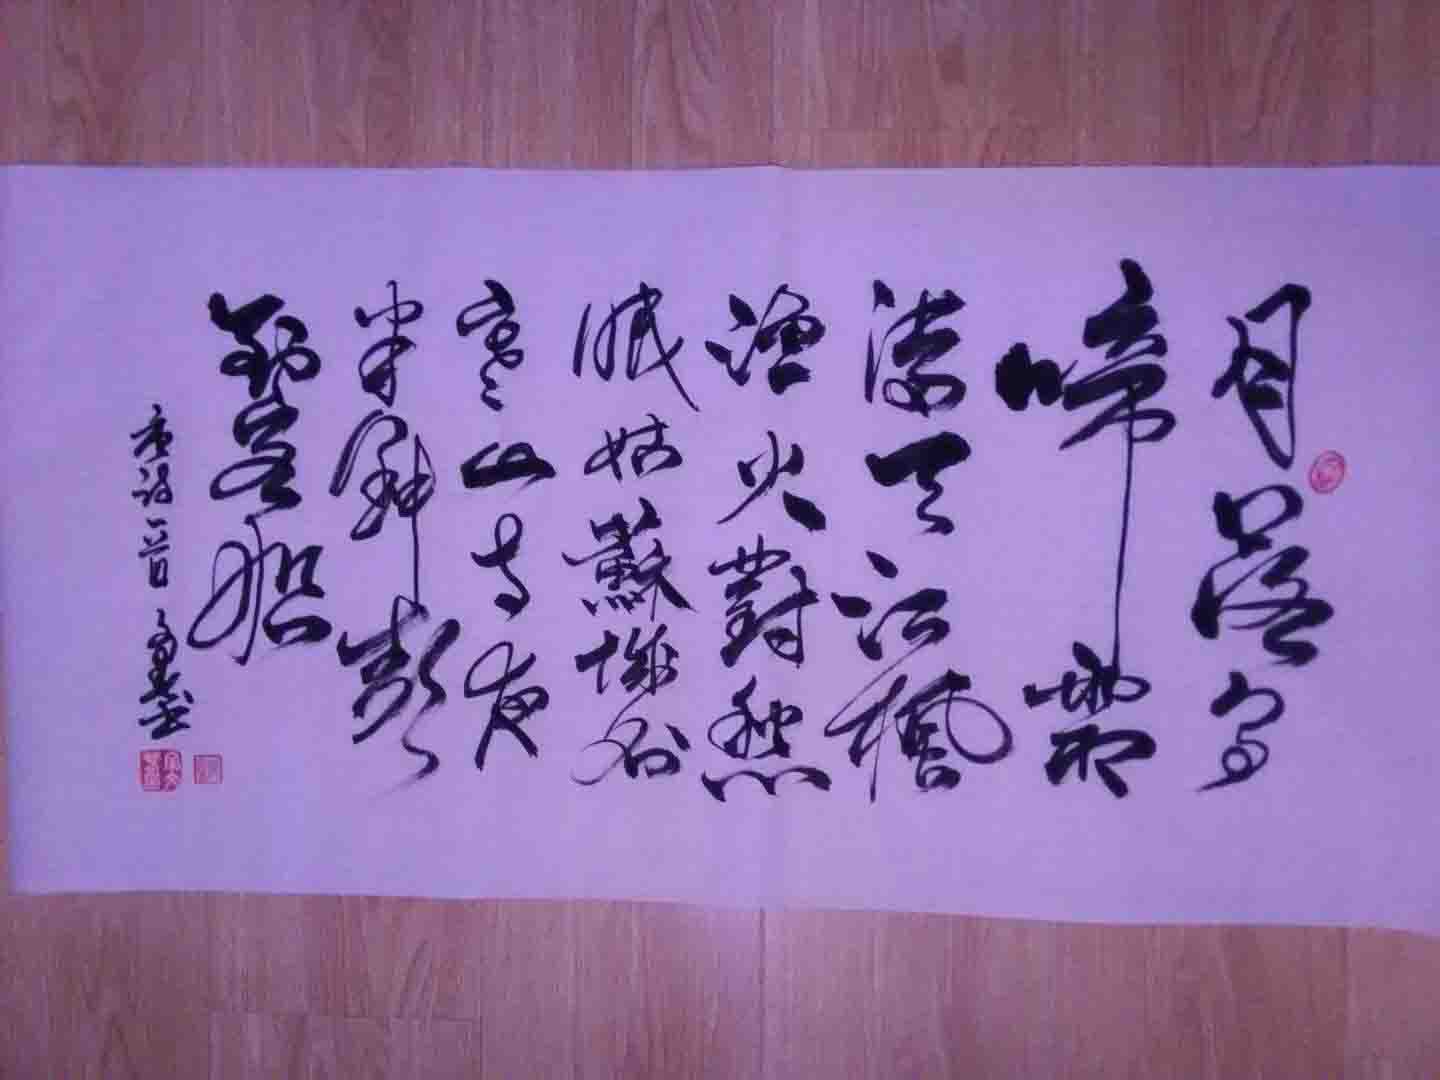 月落烏
啼霜
滿天江楓
漁火對愁
眠姑蘇城外
寒山寺夜
半鐘聲
到客船
唐詩一首